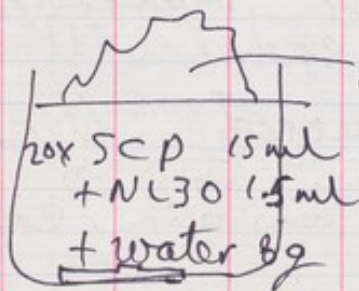 20x SCP 15ml
+NL30 1.5ml
+ water 8g